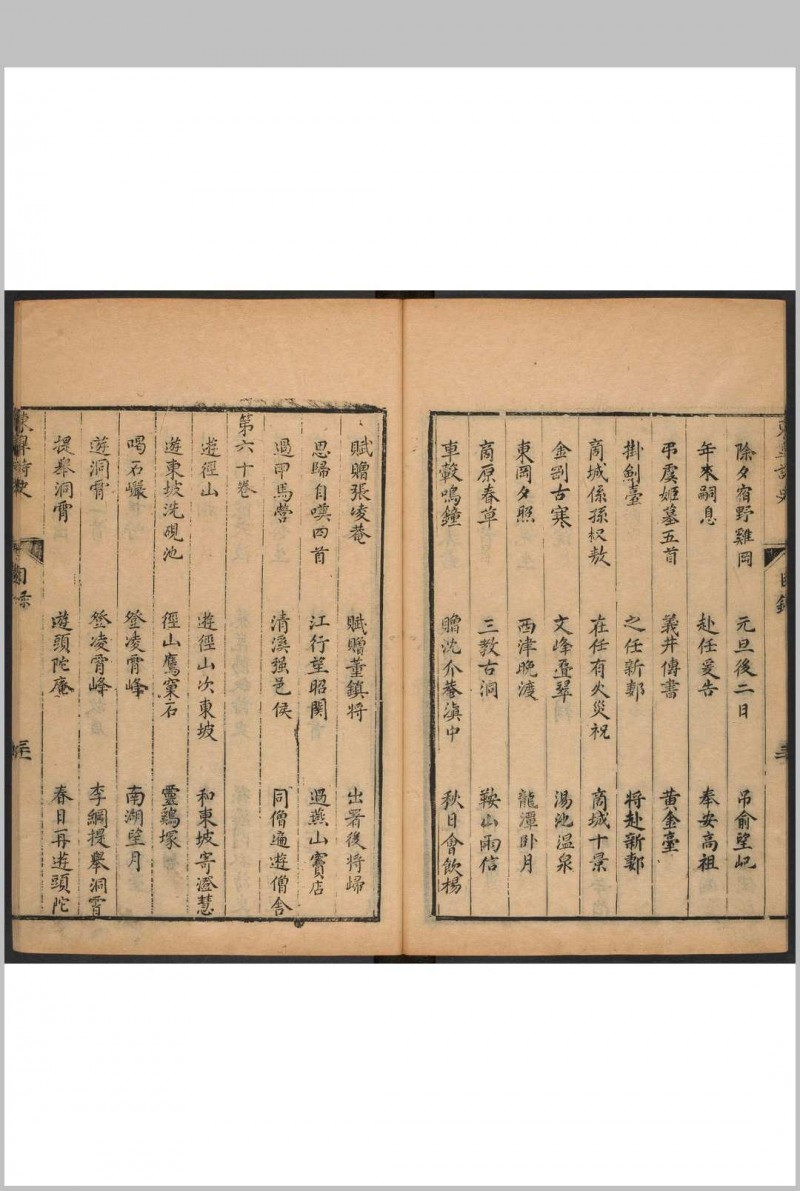 除夕宿野雞岡　元旦後二日　吊俞望屺
年來嗣息　赴任爰告　奉安高祖
弔虞姬墓五首　義井傳書　黃金臺
掛劍臺　之任新鄭　將赴新鄭
商城係孫叔敖　在任有火災祝　商城十景
金剛古寒　文峰疊翠　湯池溫泉
東岡夕照　西津晚渡　龍潭卧月
商原春草　三教古洞　鞍山雨信
車轂鳴鐘　贈沈介菴滇中　秋日會飲楊
賦贈張凌菴　賦贈董鎮將　出署後將歸
思歸自嘆四首　江行至昭関　過燕山竇店
過甲馬營　清溪强邑侯　同僧遍遊僧舍
第六十卷
遊徑山　遊徑山次東坡　和東坡寄澄慧
遊東坡洗硯池　徑山鷹窠石　靈鷄塚
喝石巗　登凌霄峰　南湖望月
遊洞霄　登凌霄峰　李綱提舉洞霄
提舉洞霄　遊頭陀庵　春日再遊頭陀
目錄